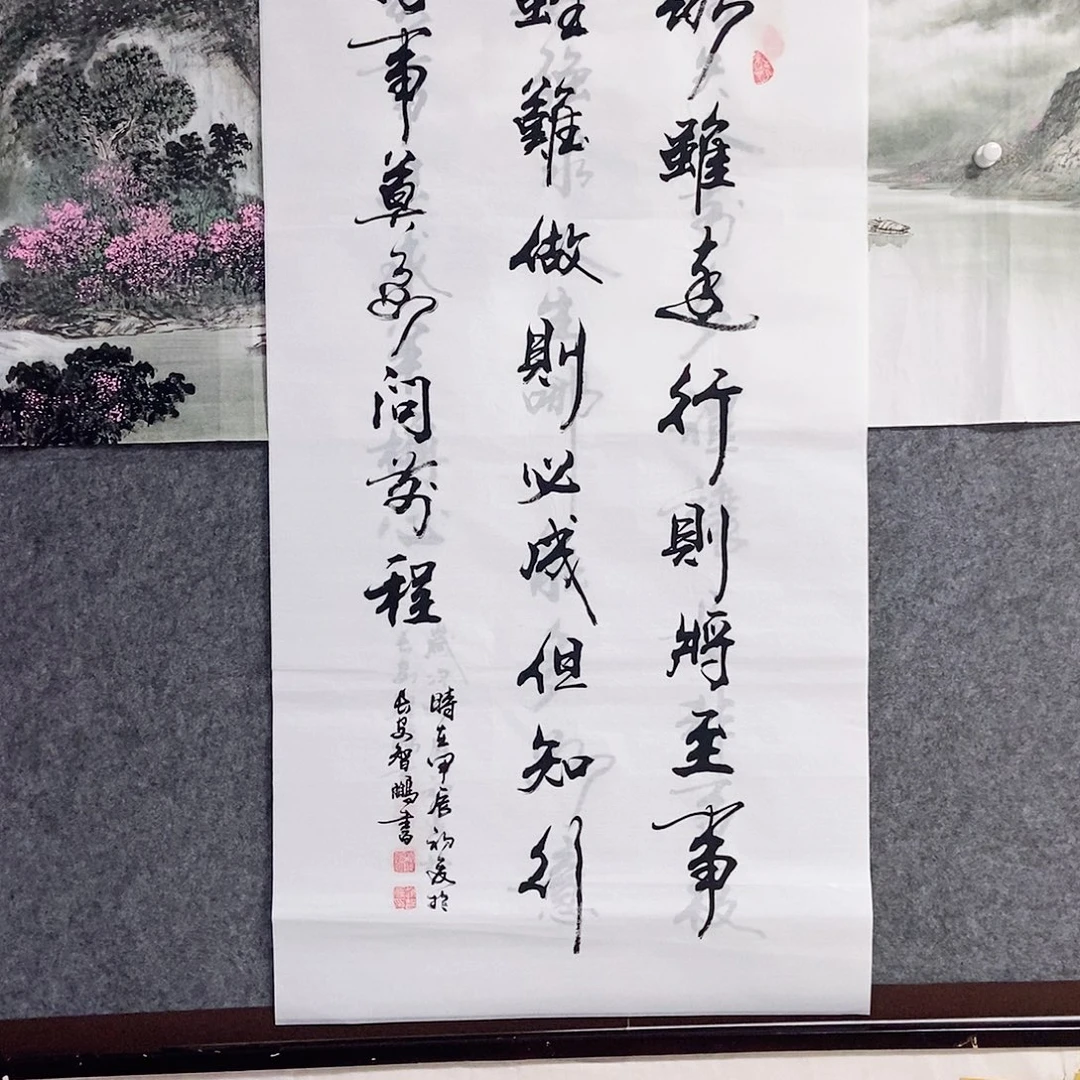 雖遠行則將至事
雖難做則必成但知行
事莫要問前程
時在甲辰初夏於
長安智鵬書